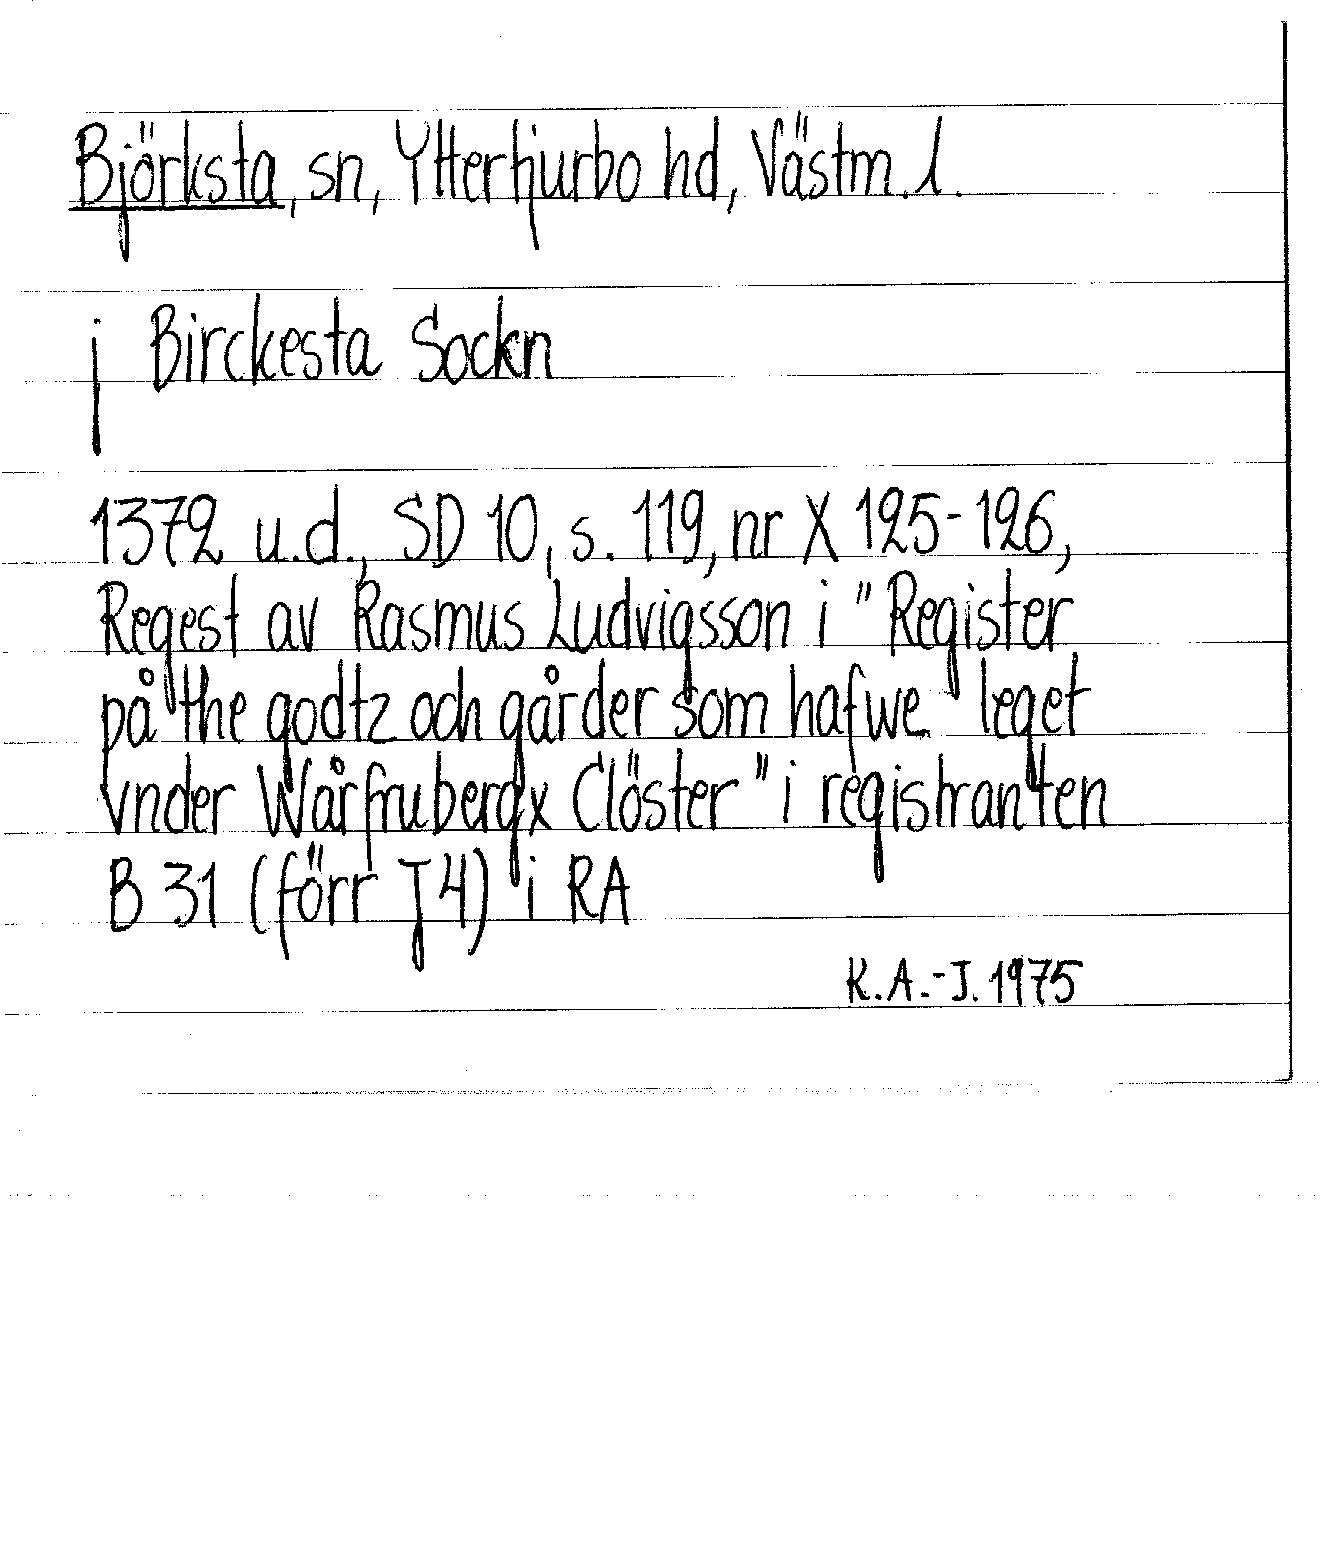 Björksta, sn, Yttertjurbo hd, Västm. l.
j Birckesta Sockn
1372 u.d., SD 10, s. 119, nr X 125-126,
Regest av Rasmus Ludvigsson i "Register
på the godtz och gårder som hafwe leget
vnder Wårfrubergx Clöster" i registranten
B 31 (förr J 4) i RA
K.A.-J. 1975